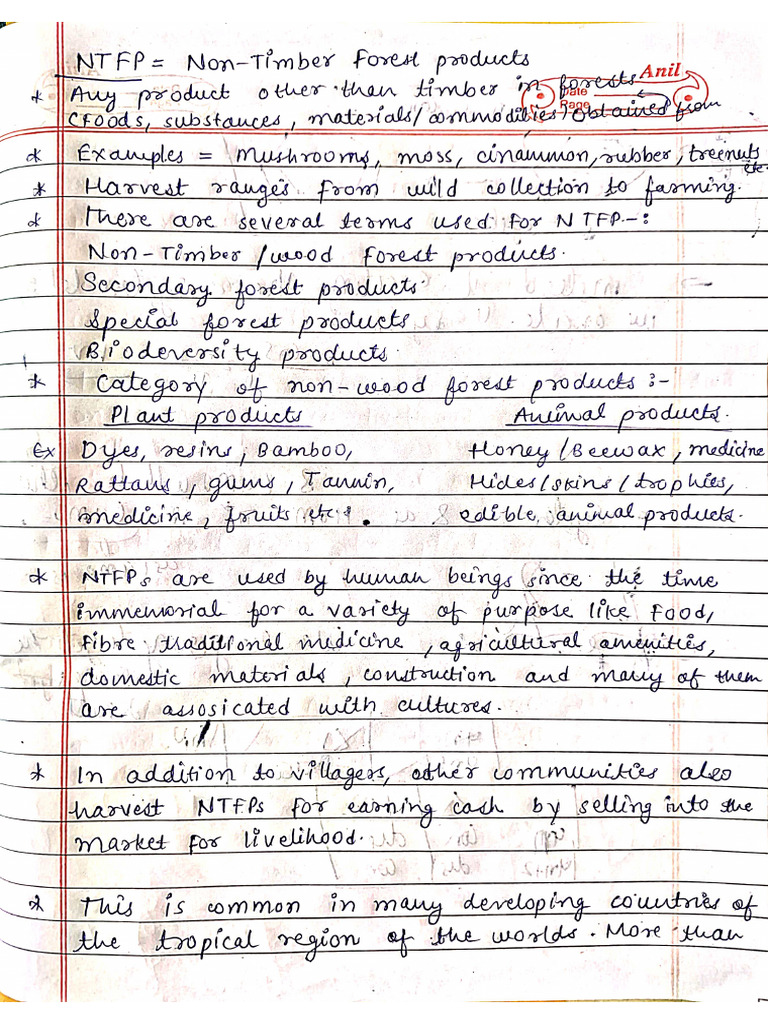 NTFP = Non-Timber Forest products
Anil
* Any product other than timber in forests
Date
Page
(Foods, substances, materials/commodities) obtained from
* Examples = Mushrooms, moss, cinammon, rubber, treenuts etc.
* Harvest ranges from wild collection to farming.
* There are several terms used for NTFP-:
Non-Timber/wood forest products.
Secondary forest products.
Special forest products
Biodeversity products.
* Category of non-wood forest products :-
Plant products Animal products.
Ex Dyes, resins, Bamboo, Honey/Beewax, medicine
Rattans, gums, Tannin, Hides/skins/trophies,
medicine, fruits etc. & edible animal products.
* NTFPs are used by human beings since the time
immemorial for a variety of purpose like Food,
fibre traditional medicine, agricultural amenities,
domestic materials, construction and many of them
are assosicated with cultures.
* In addition to villagers, other communities also
harvest NTFPs for earning cash by selling into the
market for livelihood.
* This is common in many developing countries of
the tropical region of the worlds. More than